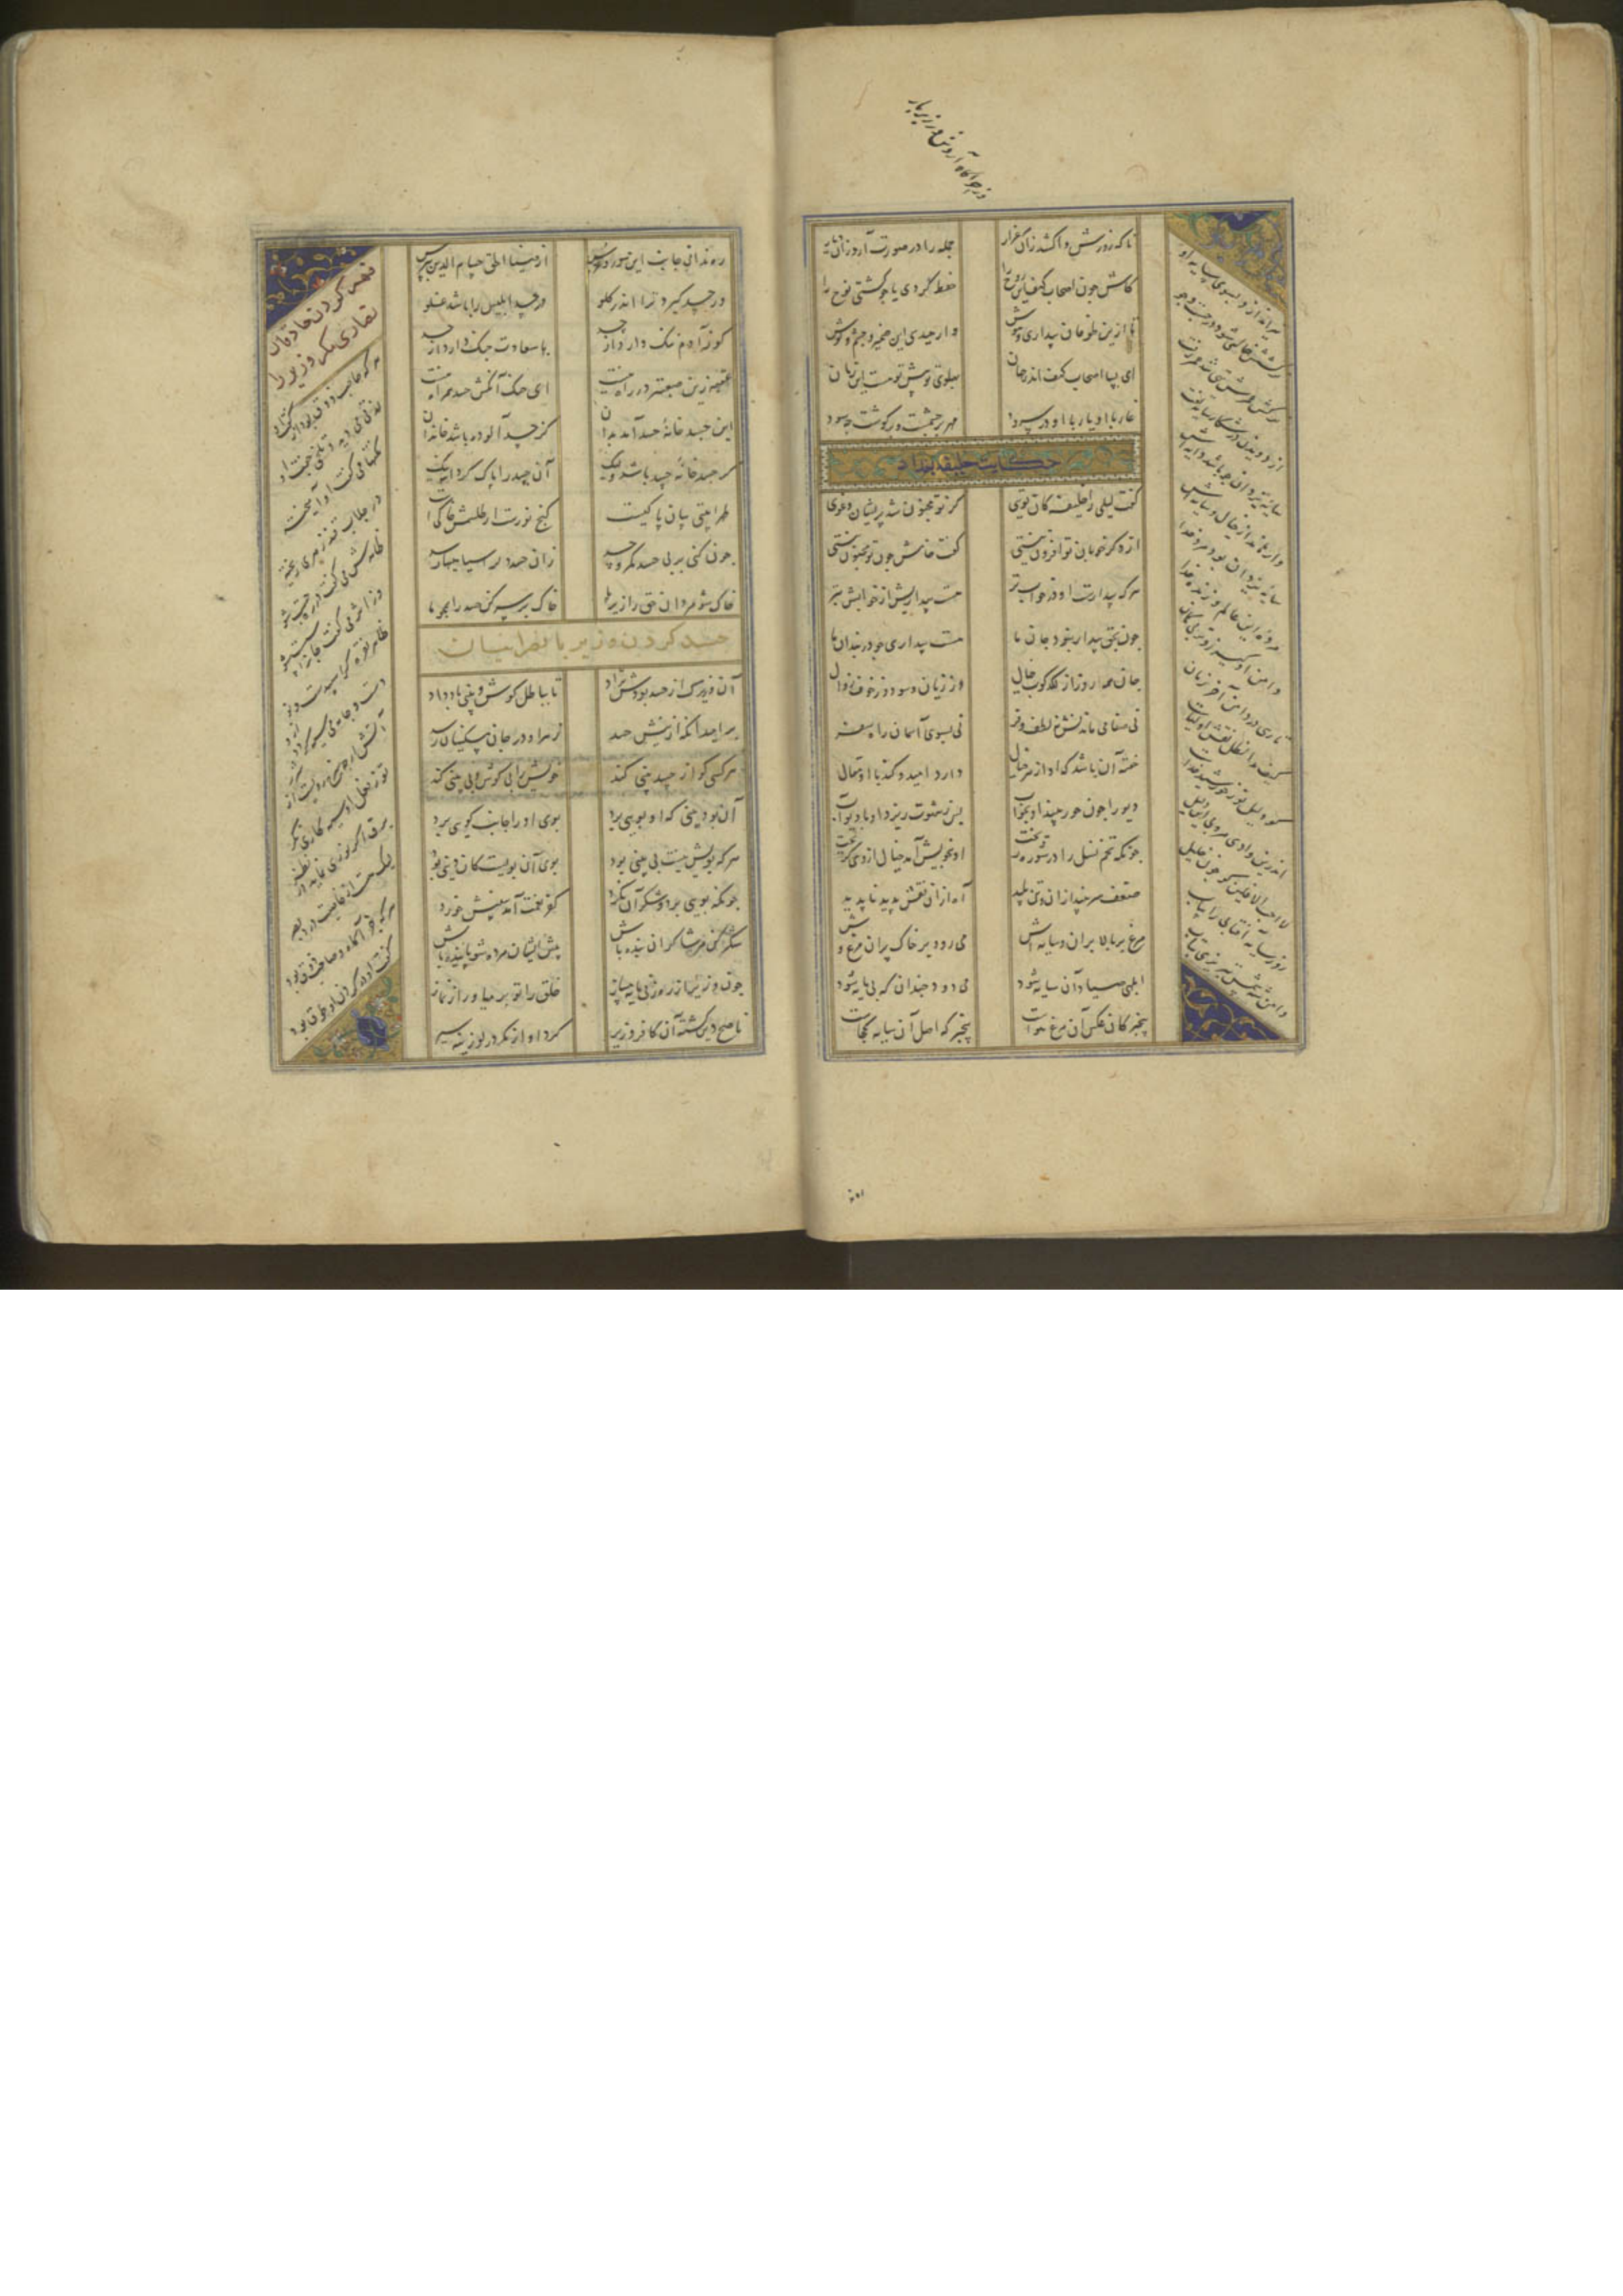 تا که روزش واکشد زان مرغزار
جمله را در صورت آرد زان دیار
کاش چون اصحاب کهف این روح را
حفظ کردی یا چو کشتی نوح را
تا ازین طوفان بیداری و هوش
وارهیدی این ضمیر و چشم و گوش
ای بسا اصحاب کهف اندر جهان
پهلوی تو پیش تو هست این زمان
غار با او یار با او در سرود
مهر بر چشمست و بر گوشت چه سود
حکایت خلیفه بغداد
گفت لیلی را خلیفه کان توی
کز تو مجنون شد پریشان و غوی
از دگر خوبان تو افزون نیستی
گفت خامش چون تو مجنون نیستی
هرکه بیدارست او در خواب تر
هست بیداریش از خوابش بتر
چون بحق بیدار نبود جان ما
هست بیداری چو در بندان ما
جان همه روز از لگدکوب خیال
وز زیان و سود وز خوف زوال
نی صفا می ماندش نی لطف و فر
نی بسوی آسمان راه سفر
خفته آن باشد که او از هر خیال
دارد امید و کند با او مقال
دیو را چون حور بیند او بخواب
پس ز شهوت ریزد او با دیو آب
چونکه تخم نسل را در شوره ریخت
او بخویش آمد خیال از وی گریخت
ضعف سر بیند از آن و تن پلید
آه از آن نقش پدید ناپدید
مرغ بر بالا پران و سایه اش
می رود بر خاک پران مرغ وش
ابلهی صیاد آن سایه شود
می دود چندان که بی مایه شود
بیخبر کان عکس آن مرغ هواست
بیخبر که اصل آن سایه کجاست
تیر اندازد بسوی سایه او
ترکشش خالی شود در جست و جو
ترکش عمرش تهی شد عمر رفت
از دویدن در شکار سایه تفت
سایه یزدان چو باشد دایه اش
وارهاند از خیال و سایه اش
سایه یزدان بود بنده خدا
مرده این عالم و زنده خدا
دامن او گیر زوتر بی گمان
تا رهی در دامن آخر زمان
کیف مد الظل نقش اولیاست
کو دلیل نور خورشید خداست
اندرین وادی مرو بی این دلیل
لا احب الآفلین گو چون خلیل
رو ز سایه آفتابی را بیاب
دامن شه شمس تبریزی بتاب
ره ندانی جانب این سور و عرس
از ضیاء الحق حسام الدین بپرس
ور حسد گیرد ترا اندر گلو
در حسد ابلیس را باشد غلو
کو ز آدم ننگ دارد از حسد
با سعادت جنگ دارد از حسد
عقبه زین صعبتر در راه نیست
ای خنک آنکش حسد همراه نیست
این جسد خانه حسد آمد بدان
کز حسد آلوده باشد خاندان
گر جسد خانه حسد باشد ولیک
آن جسد را پاک کرد الله نیک
طهرا بیتی بیان پاکیست
گنج نورست ار طلسمش خاکیست
چون کنی بر بی حسد مکر و حسد
زان حسد دل را سیاهیها رسد
خاک شو مردان حق را زیر پا
خاک بر سر کن حسد را همچو ما
حسد کردن وزیر با نصرانیان
آن وزیرک از حسد بودش نژاد
تا بباطل گوش و بینی باد داد
بر امید آنکه از نیش حسد
زهر او در جان مسکینان رسد
هر کسی کو از حسد بینی کند
خویش را بی گوش و بی بینی کند
آن بود بینی که او بویی برد
بوی او را جانب کویی برد
هرکه بویش نیست بی بینی بود
بوی آن بویست کان دینی بود
چونکه بویی برد و شکر آن نکرد
کفر نعمت آمد و بینیش خورد
شکر کن مر شاکران را بنده باش
پیش ایشان مرده شو پاینده باش
چون وزیر از رهزنی مایه مساز
خلق را تو بر میاور از نماز
ناصح دین گشته آن کافر وزیر
کرده او از مکر در لوزینه سیر
فهم کردن حاذقان
نصاری مکر وزیر را
هرکه صاحب ذوق بود از گفت او
لذتی می دید و تلخی جفت او
نکتها می گفت او آمیخته
در جلاب قند زهری ریخته
ظاهرش می گفت در ره چست شو
وز اثر می گفت جان را سست شو
ظاهر نقره گر اسپیدست و نو
دست و جامه می سیه گردد ازو
آتش ار چه سرخ رویست از شرر
تو ز فعل او سیه کاری نگر
برق اگر نوری نماید در نظر
لیک هست از خاصیت دزد بصر
هرکه جز آگاه و صاحب ذوق بود
گفت او در گردن او طوق بود